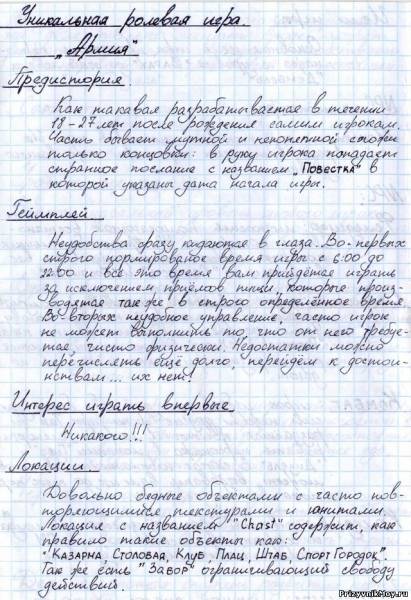 Уникальная ролевая игра
"Армия"
Предистория.
Как таковая разрабатывается в течении
18-27 лет после рождения самим игроком.
Часть бывает мутной и непонятной схожи
только концовки: в руку игрока попадает
странное послание с названием "Повестка" в
которой указаны дата начала игры.
Геймплей
Неудобства сразу кидаются в глаза. Во-первых
строго нормированое время игры с 6:00 до
22:00 и всё это время вам прийдётся играть
за исключением приёмов пищи, которые произ-
водятся так же в строго определённое время.
Во вторых неудобное управление, часто игрок
не может выполнить то, что от него требуе-
тся, чисто физически. Недостатки можно
перечислять ещё долго, перейдём к достои-
нствам... их нет!
Интерес играть впервые
Никакого!!!
Локации
Довольно бедные объектами с часто пов-
торяющимися текстурами и юнитами.
Локация с названием "Chast" содержит, как
правило такие объекты как:
"Казарна, Столовая, Клуб, Плац, Штаб, Спорт Городок".
Так же есть "Забор" ограничивающий свободу
действий.
PrizyvnikMoy.ru